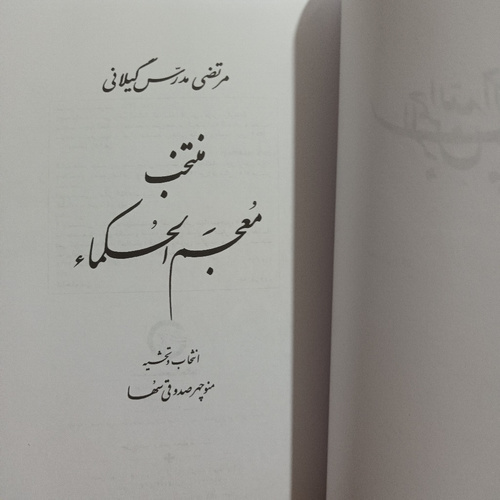 مرتضی مدرّس گیلانی
منتخب
مُعجَم الحُکماء
انتخاب و تحشیه
منوچهر صدوقی سُها